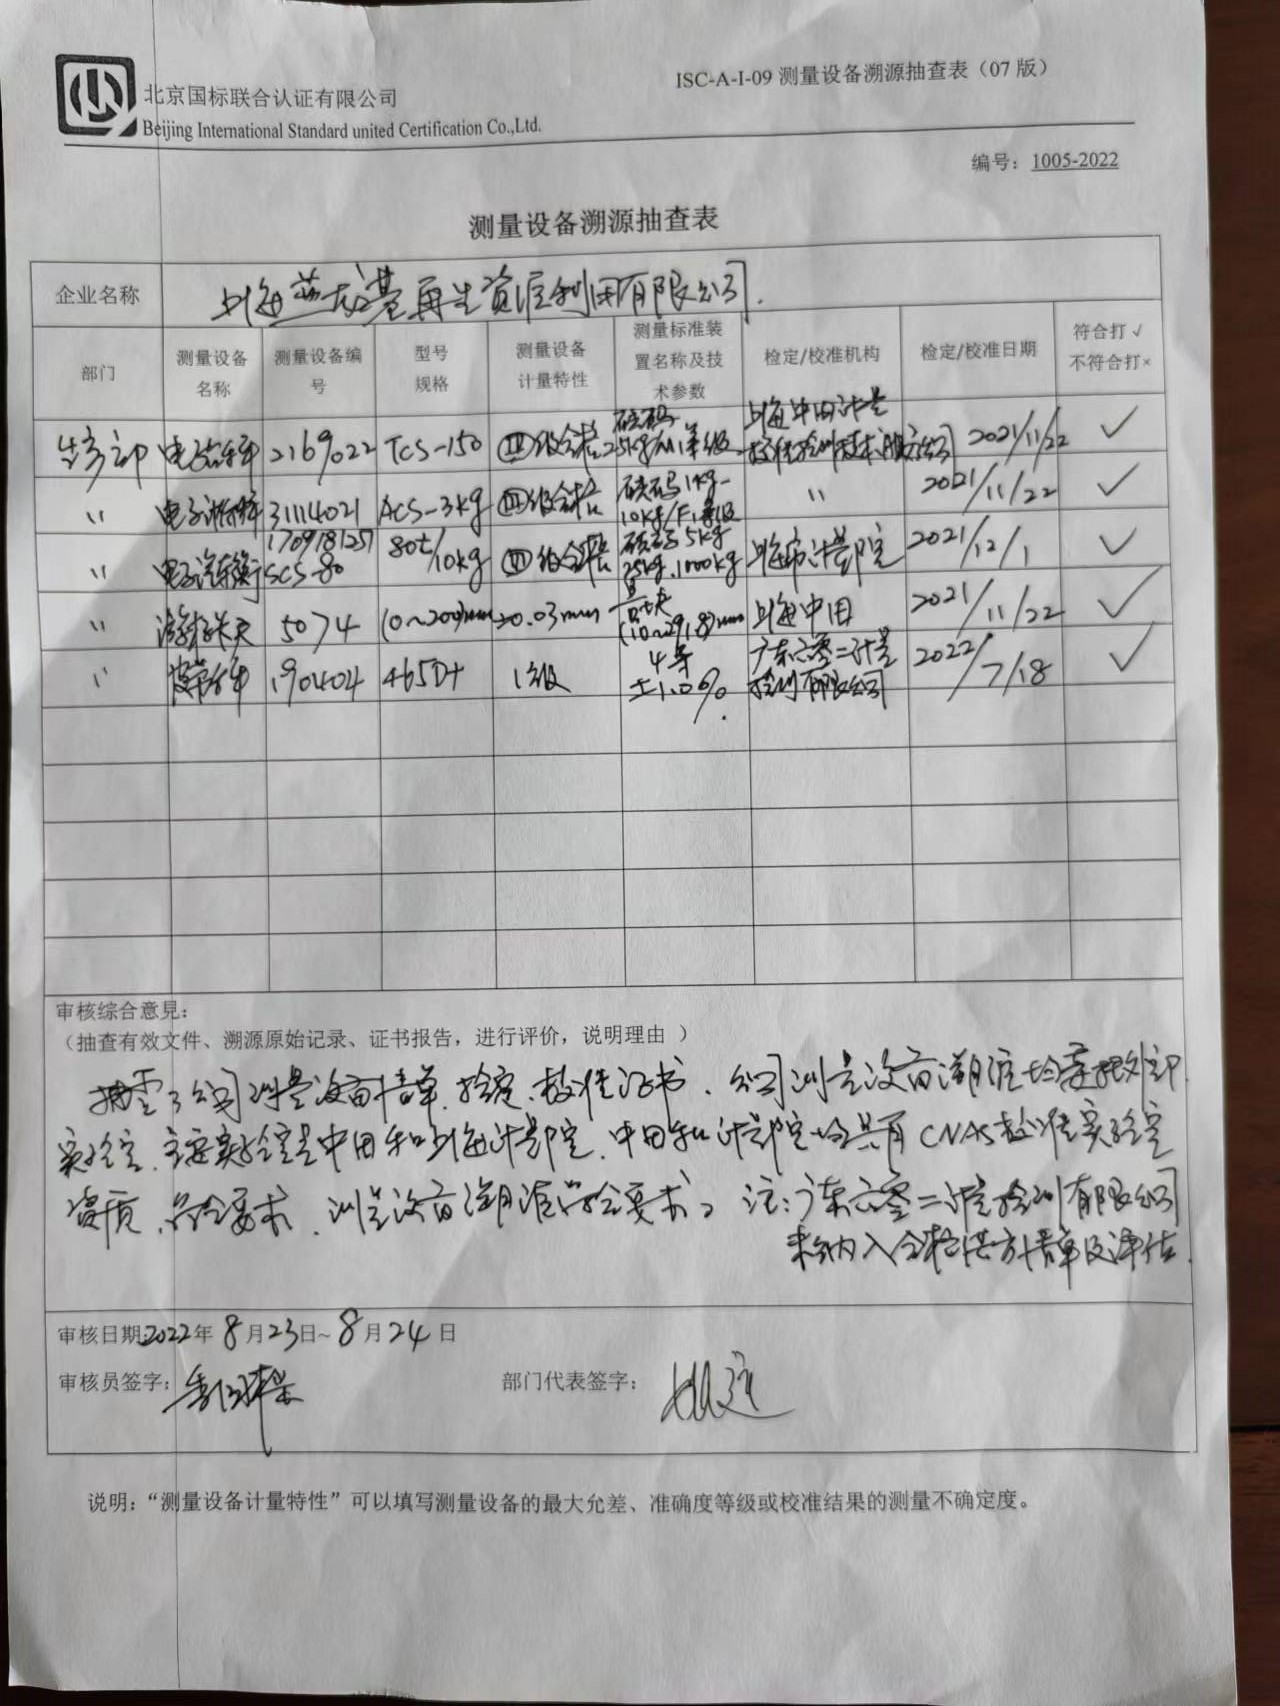 北京国标联合认证有限公司
Beijing International Standard united Certification Co.,Ltd.
ISC-A-I-09 测量设备溯源抽查表（07 版）
编号：1005-2022
测量设备溯源抽查表
企业名称 上海 再生资源利用有限公司.
部门 测量设备名称 测量设备编号 型号规格 测量设备计量特性 测量标准装置名称及技术参数 检定/校准机构 检定/校准日期 符合打√ 不符合打×
生产部 电子台秤 2169022 TCS-150 Ⅲ级合格 砝码 25kg/M1等级 上海中田计量校准检测技术服务公司 2021/11/22 ✓
〃 电子计价秤 31114021 ACS-3kg Ⅲ级合格 砝码1kg-10kg/F1等级 〃 2021/11/22 ✓
〃 电子汽车衡 1709181257 SCS-80 80t/10kg Ⅲ级合格 砝码 5kg 25kg.1000kg 上海市计量院 2021/12/1 ✓
〃 游标卡尺 5074 (0~200)mm ±0.03mm 量块 (10~291.8)mm 上海中田 2021/11/22 ✓
〃 皮带秤 190404 465D+ 1级 4等 ±1.0%. 广东六零二计量检测有限公司 2022/7/18 ✓
审核综合意见：
（抽查有效文件、溯源原始记录、证书报告，进行评价，说明理由 ）
抽查了公司测量设备清单、检定、校准证书、公司测量设备溯源均委托外部
实验室、主要实验室是中田和上海计量院、中田和计量院均具有CNAS校准实验室
资质、符合要求、测量设备溯源符合要求。注：广东六零二计量检测有限公司
未纳入合格供方清单及评估.
审核日期：2022年 8月23日~8月24日
审核员签字：
部门代表签字：
说明：“测量设备计量特性”可以填写测量设备的最大允差、准确度等级或校准结果的测量不确定度。